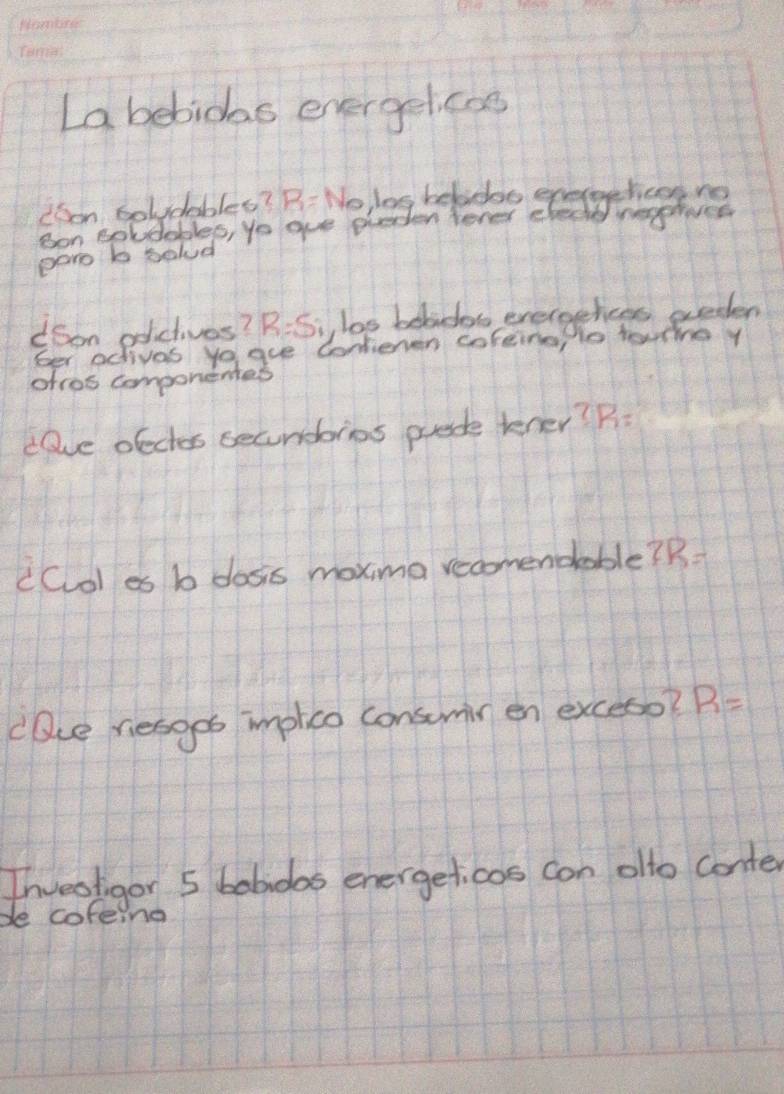 Nombre:
Tema:
La bebidas energeticas
¿Son saludables? R=No, las bebidas energeticas no
son saludables, ya que pueden tener efecto negativos
para la salud
¿Son adictivas? R=Si, las bebidas energeticas pueden
ser activas ya que contienen cafeina, la taurina y
otros componentes
¿Que efectos secundarios puede tener? R=
¿Cual es la dosis maxima recomendable? R=
¿Que riesgos implica consumir en exceso? R=
Investigar 5 bebidas energeticas con alto conten
de cafeina